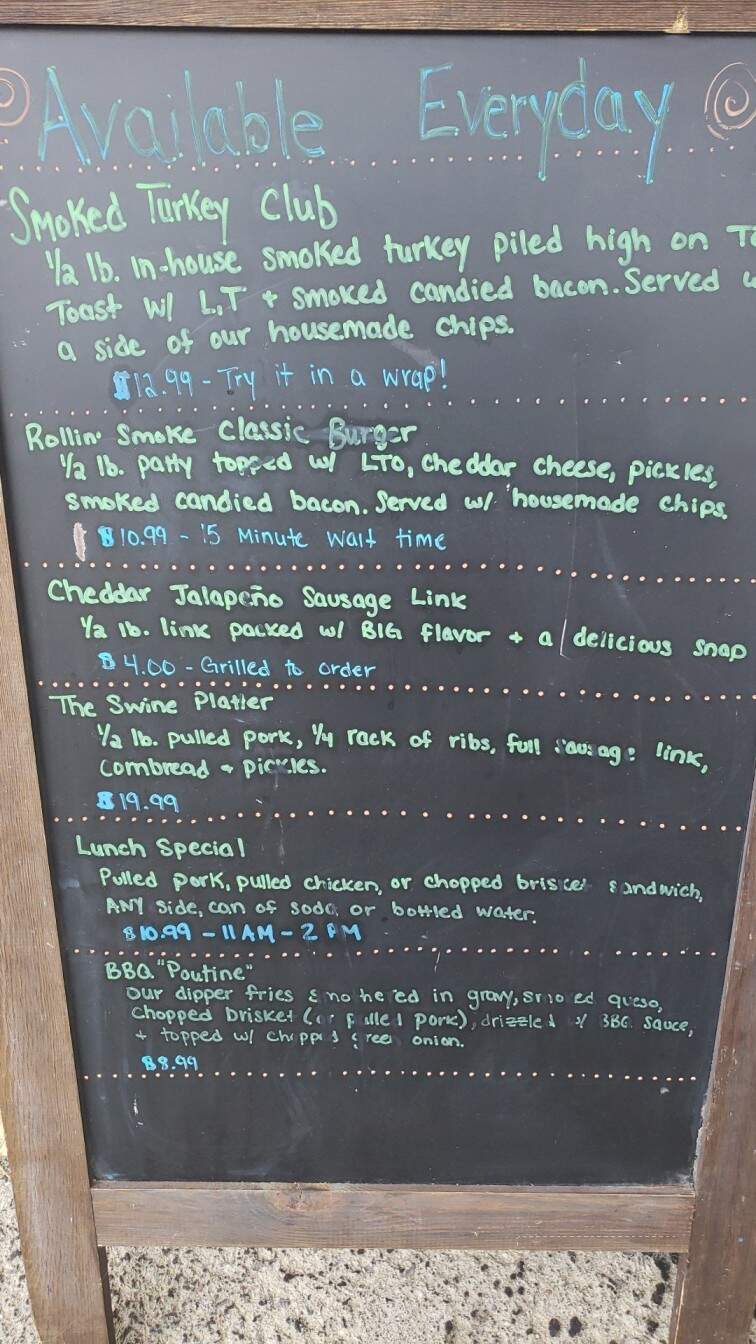 Available Everyday
Smoked Turkey Club
1/2 lb. in-house smoked turkey piled high on
Toast w/ L,T + smoked candied bacon. Served
a side of our housemade chips.
$12.99 - Try it in a wrap!
Rollin' Smoke Classic Burger
1/2 lb. patty topped w/ LTO, cheddar cheese, pickles,
smoked candied bacon. Served w/ housemade chips.
$10.99 - 15 Minute wait time
Cheddar Jalapeño Sausage Link
1/2 lb. link packed w/ BIG flavor + a delicious snap
$4.00 - Grilled to order
The Swine Platter
1/2 lb. pulled pork, 1/4 rack of ribs, full sausage link,
cornbread + pickles.
$19.99
Lunch Special
Pulled pork, pulled chicken, or chopped brisket sandwich,
ANY side, can of soda or bottled water.
$10.99 - 11AM - 2PM
BBQ "Poutine"
Our dipper fries smothered in gravy, smoked queso,
chopped brisket (or pulled pork), drizzled w/ BBQ sauce,
+ topped w/ chopped green onion.
$8.99